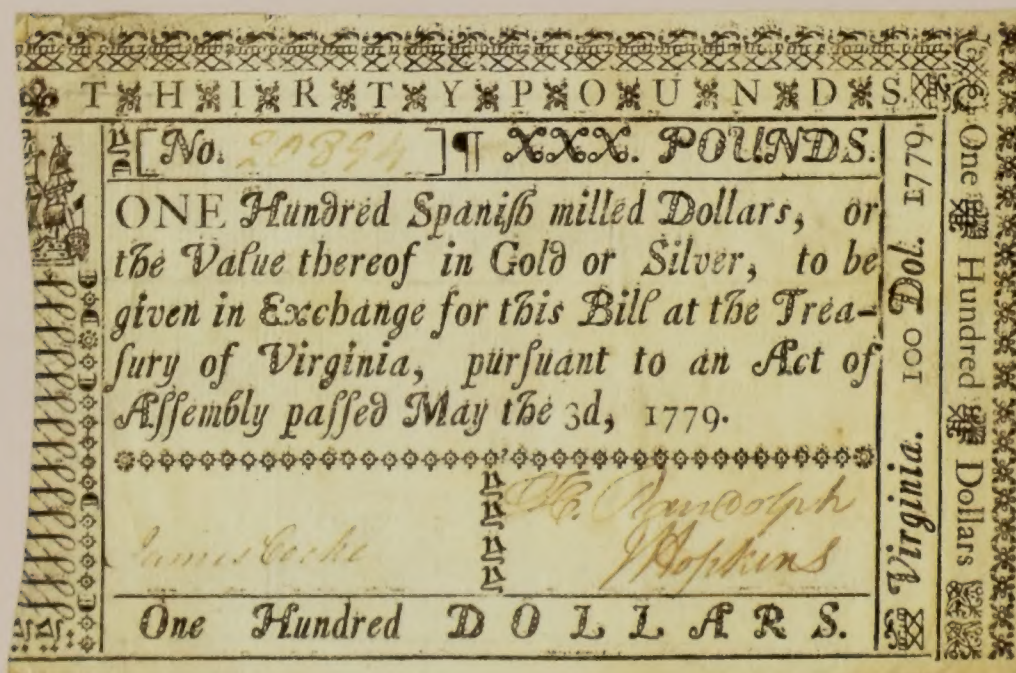 THIRTY POUNDS.
[No. 20894] ¶ XXX. POUNDS.
ONE Hundred Spaniſh milled Dollars, or
the Value thereof in Gold or Silver, to be
given in Exchange for this Bill at the Trea-
ſury of Virginia, purſuant to an Act of
Aſſembly paſſed May the 3d, 1779.
James Cocke
H. Randolph
J Hopkins
One Hundred DOLLARS.
Virginia. 100 Dol. 1779.
One Hundred Dollars